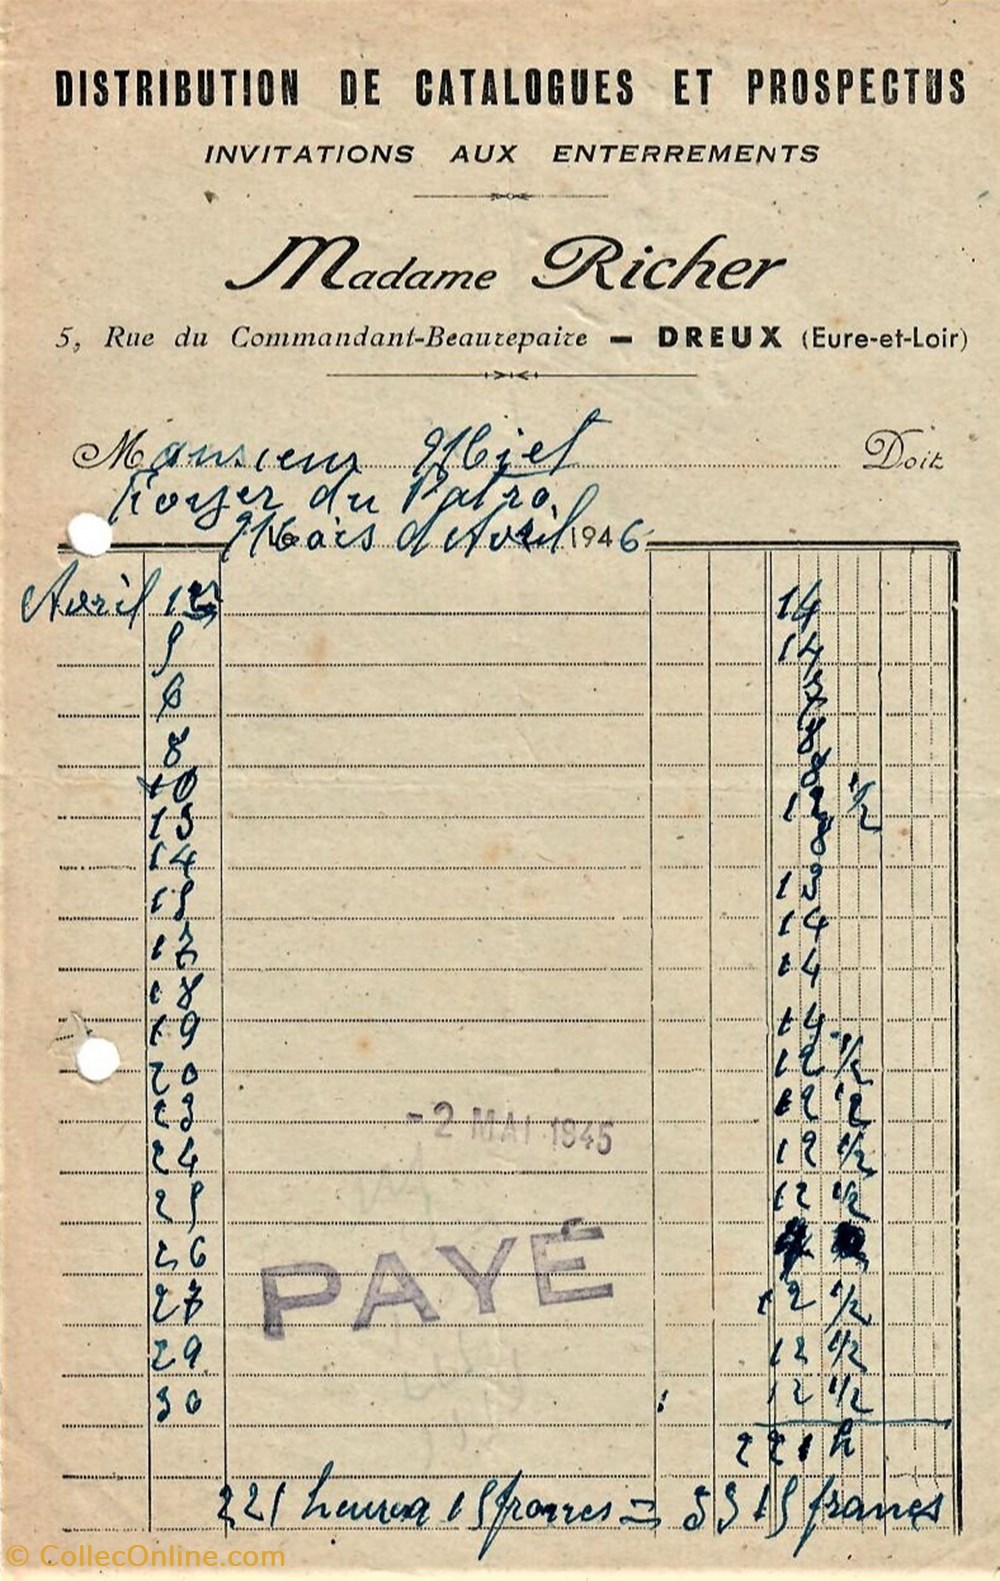 DISTRIBUTION DE CATALOGUES ET PROSPECTUS
INVITATIONS AUX ENTERREMENTS
Madame Richer
5, Rue du Commandant-Beaurepaire - DREUX (Eure-et-Loir)
Monsieur Doit
Foyer du Patro
Mois d'Avril 1946
Avril 1er 14
5 14
6 7
8 8
10 8
13 12 1/2
14 8
15 13
17 14
18 14
19 14
20 12 1/2
23 12 1/2
24 12 1/2
25 12 1/2
26
27 12 1/2
29 12 1/2
30 12 1/2
- 2 MAI 1945
PAYÉ
221 h
221 heures 15 francs = 3315 francs
© CollecOnline.com